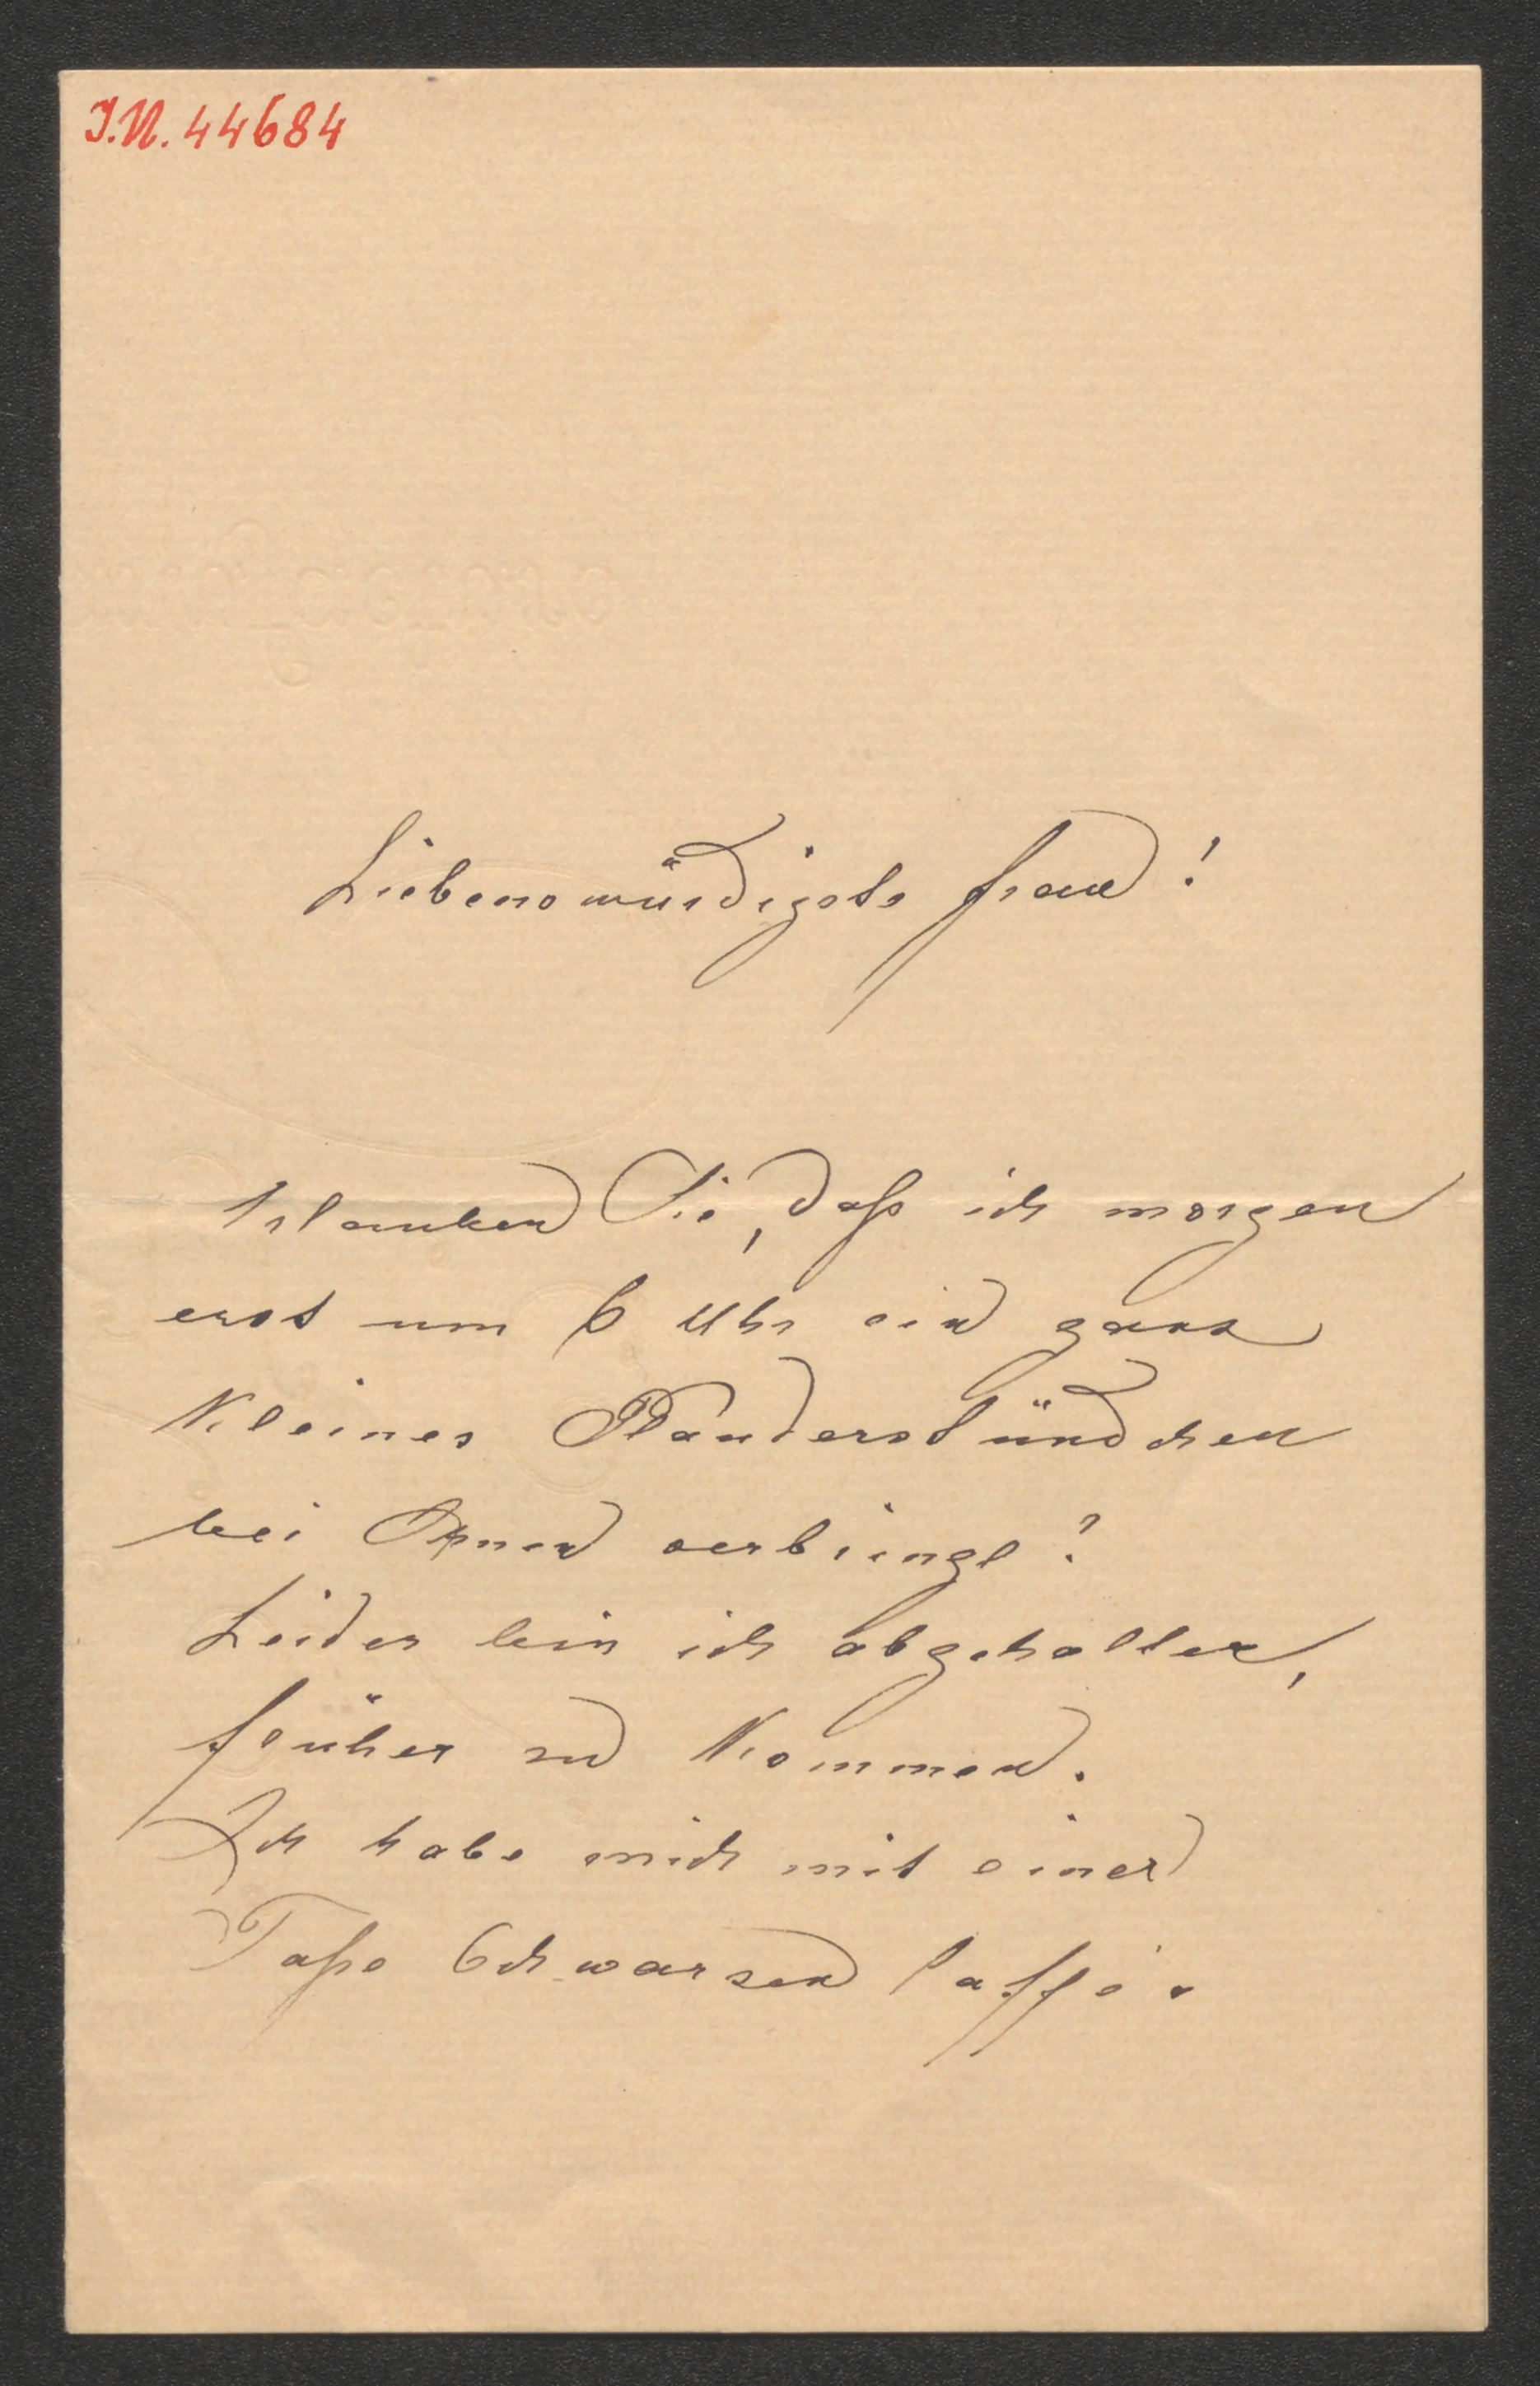 I.N. 44684
Liebenswürdigste Frau!
Erlauben Sie, daß ich morgen
erst um 6 Uhr ein ganz
kleines Plauderstündchen
bei Ihnen verbringe?
Leider bin ich abgehalten,
früher zu kommen.
Ich habe mich mit einer
Taße Schwarzen Caffé.